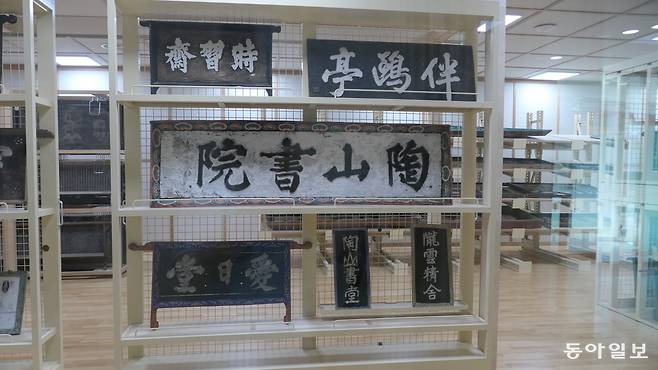 時習齋
伴鷗亭
陶山書院
愛日堂
陶山書堂
隴雲精舍
동아일보